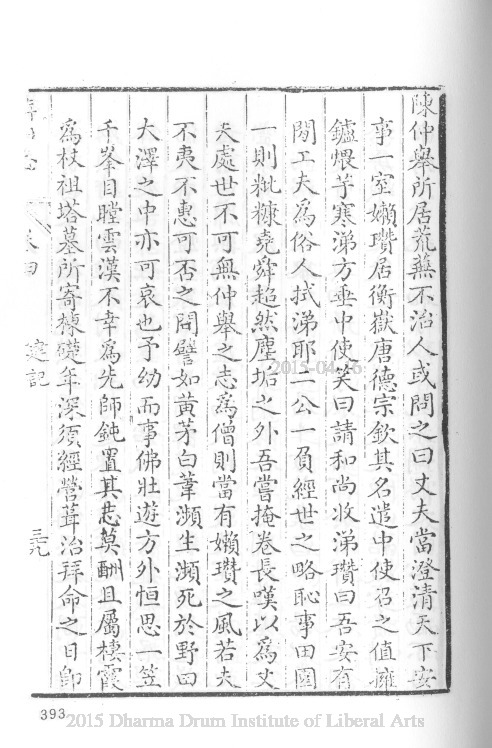 陳仲舉所居荒蕪不治人或問之曰丈夫當澄清天下安
事一室嬾瓚居衡嶽唐德宗欽其名遣中使召之值擁
鑪煨芋寒涕方垂中使笑曰請和尚收涕瓚曰吾安有
閒工夫為俗人拭涕耶二公一負經世之略恥事田園
一則粃糠堯舜超然塵垢之外吾嘗掩卷長嘆以為丈
夫處世不可無仲舉之志為僧則當有嬾瓚之風若夫
不夷不惠可否之間譬如黃茅白葦瀕生瀕死於野田
大澤之中亦可哀也予幼而事佛壯遊方外恒思一笠
千峯目瞠雲漢不幸為先師鈍置其志莫酬且屬棲霞
為杖祖塔墓所寄棟礎年深須經營葺治拜命之日即
卷四
記
三九
393
2015-04-16
2015 Dharma Drum Institute of Liberal Arts